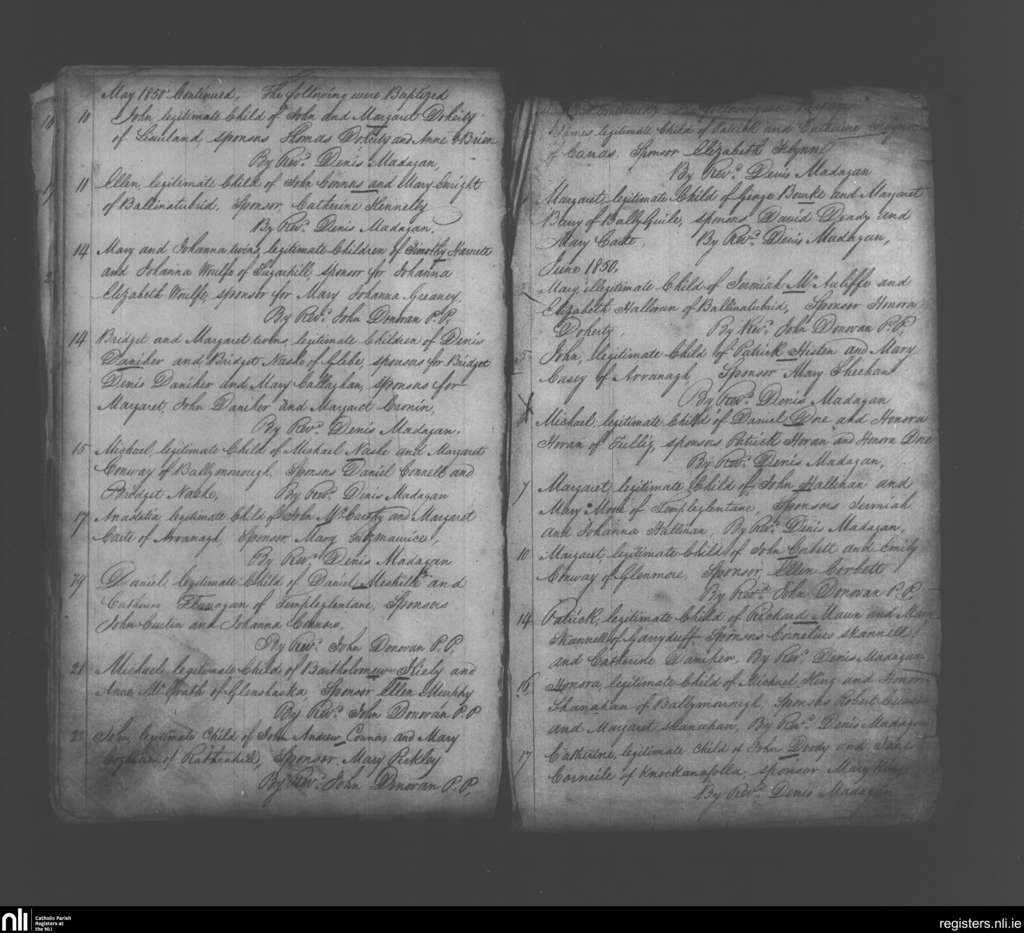 May 1850 Continued, The following were Baptized
10 10 John, legitimate Child of John and Margaret Doherty
of Lisuiland, sponsors Thomas Doherty and Anne O'Brien
By Revd. Denis Madagan,
11 Ellen, legitimate Child of John Connors and Mary Enright
of Ballinatubrid, Sponsor, Catherine Kennely
By Revd. Denis Madagan.
14 Mary and Johanna twins, legitimate Children of Timothy Harnett
and Johanna Woulfe of Sugarhill, sponsor for Johanna
Elizabeth Woulfe, sponsor for Mary Johanna Greaney.
By Revd. John Donovan P.P.
14 Bridget and Margaret twins, legitimate Children of Denis
Daniher and Bridget Nashe of Glebe, sponsors for Bridget
Denis Daniher and Mary Callaghan, Sponsors for
Margaret, John Daniher and Margaret Cronin,
By Revd. Denis Madagan.
15 Michael, legitimate Child of Michael Nashe and Margaret
Conway of Ballymorough. Sponsors Daniel Connell and
Bridget Nashe, By Revd. Denis Madagan
17 Anastatia, legitimate Child of John McCarthy and Margaret
Carte of Arranagh, Sponsor Mary Fitzmaurice,
By Revd. Denis Madagan
19 Daniel, legitimate Child of Daniel and
Catherine Flanagan of Templeglentane, Sponsors
John Curtin and Johanna Connors,
By Revd. John Donovan P.P.
21 Michael, legitimate Child of Bartholomew Hiely and
Anne McGrath of Glenshaska Sponsor Ellen Murphy
By Revd. John Donovan P.P.
23 John, legitimate Child of John Andrew Connors and Mary
of Rathcahill, Sponsor, Mary
By Revd. John Donovan P.P,
Continued, The following were Baptized
James, legitimate Child of Patrick and Catherine
of Camas, Sponsor Elizabeth Flynn
By Revd. Denis Madagan
Margaret, legitimate Child of George Bourke and Margaret
Barry of BallyGuile, sponsors David Deady and
Mary Carte, By Revd. Denis Madagan,
June 1850.
Mary, legitimate Child of Jermiah McAuliffe and
Elizabeth Halloran of Ballinatubrid, Sponsor Honora
Doherty, By Revd. John Donovan P.P.
5 John, legitimate Child of Patrick Histen and Mary
Casey of Arranagh, Sponsor Mary Sheehan
By Revd. Denis Madagan
X Michael, legitimate Child of Daniel Dore and Honora
Horan of Tullig, sponsors Patrick Horan and Honora Dore
By Revd. Denis Madagan,
7 Margaret, legitimate Child of John Hallihan and
Mary Mock of Templeglentane, Sponsors Jermiah
and Johanna Hallihan, By Revd. Denis Madagan,
10 Margaret, legitimate Child of John Corbett and Emily
Conway of Glenmore, Sponsor Ellen Corbett
By Revd. John Donovan P.P.
14 Patrick, legitimate Child of Richard Maun and Mary
Skannell of Garryduff Sponsors Cornelius Skannell
and Catherine Daniher, By Revd. Denis Madagan
16 Honora, legitimate Child of Michael King and Honora
Shanahan of Ballymorough, Sponsors Robert
and Margaret Shanahan, By Revd. Denis Madagan
17 Catherine, legitimate Child of John Doody and Jane
of Knockannafolla, sponsor Mary King
By Revd. Denis Madagan
nli
Catholic Parish
Registers at
the NLI
registers.nli.ie